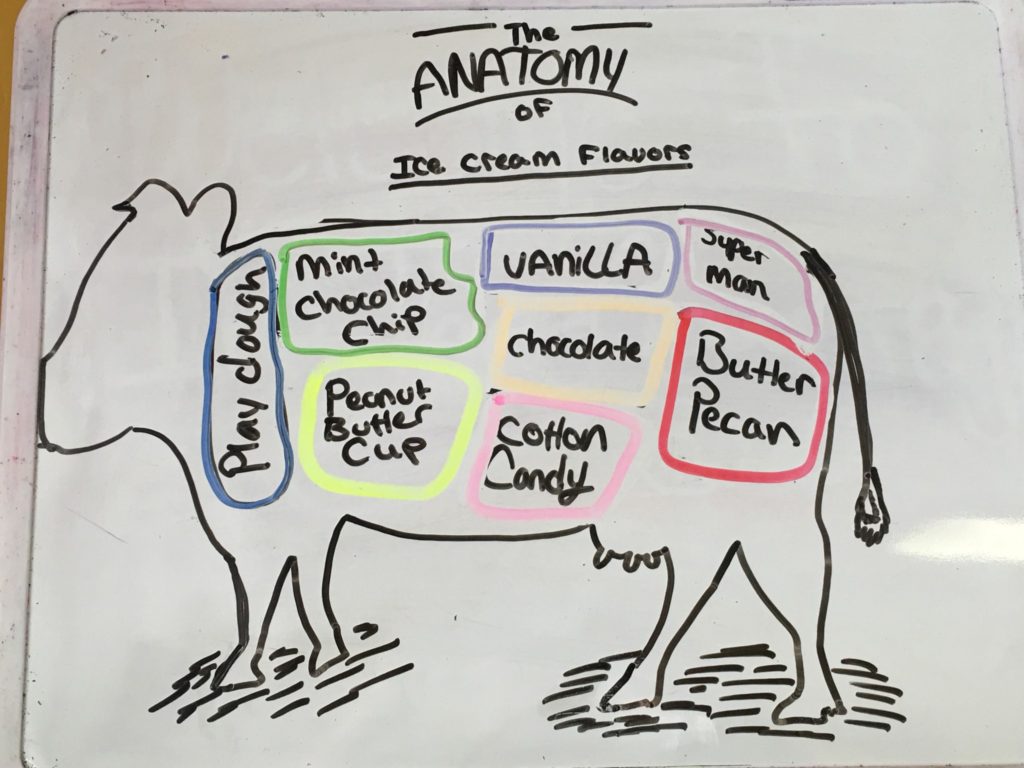 The
ANATOMY
OF
Ice Cream Flavors
Play dough
Mint
Chocolate
Chip
Peanut
Butter
Cup
VANiLLA
chocolate
Cotton
Candy
Super
Man
Butter
Pecan